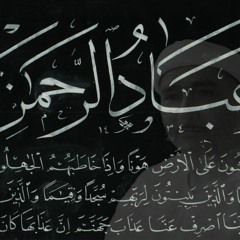 عبَادُ الرَّحْمَنِ
ـُونَ عَلَى الْأَرْضِ هَوْنًا وَإِذَا خَاطَبَهُمُ الْجَـٰهِلُو
وَالَّذِينَ يَبِيتُونَ لِرَبِّهِمْ سُجَّدًا وَقِيَـٰمًا وَالَّذِينَ
ـنَا اصْرِفْ عَنَّا عَذَابَ جَهَنَّمَ إِنَّ عَذَابَهَا كَانَ